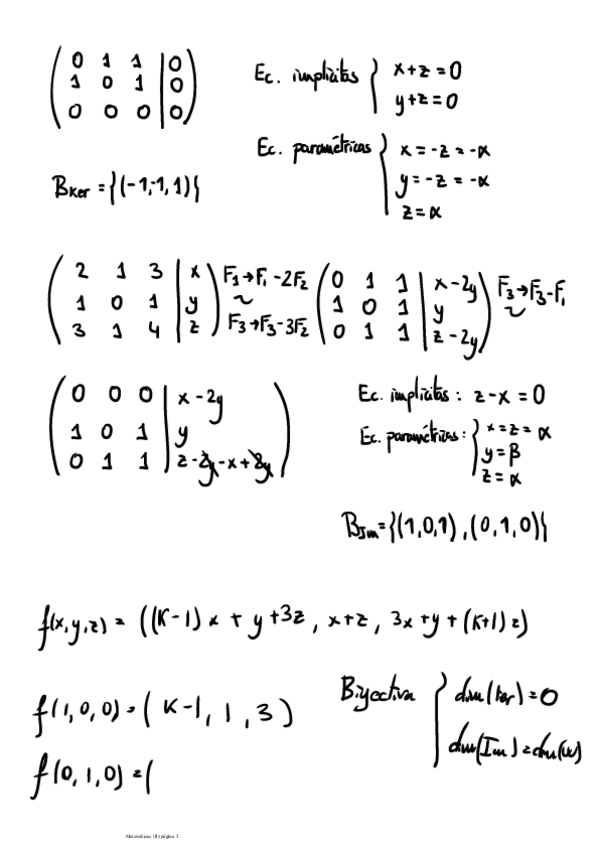 ( 0 1 1 | 0 )
( 1 0 1 | 0 )
( 0 0 0 | 0 )
Ec. implícitas { x+z=0
y+z=0
Ec. paramétricas { x=-z=-α
y=-z=-α
z=α
B_Ker = {(-1,-1,1)}
( 2 1 3 | x ) F₁→F₁-2F₂ ( 0 1 1 | x-2y ) F₃→F₃-F₁
( 1 0 1 | y ) ~ ( 1 0 1 | y ) ~
( 3 1 4 | z ) F₃→F₃-3F₂ ( 0 1 1 | z-2y )
( 0 0 0 | x-2y )
( 1 0 1 | y )
( 0 1 1 | z-2y-x+2y )
Ec. implícitas: z-x=0
Ec. paramétricas: { x=z=α
y=β
z=α
B_Im={(1,0,1),(0,1,0)}
f(x,y,z) = ((K-1)x + y+3z, x+z, 3x+y+(K+1)z)
f(1,0,0) = (K-1, 1, 3)
f(0,1,0) = (
Biyectiva { dim(ker)=0
dim(Im)=dim(W)
Matemáticas (II) página 2